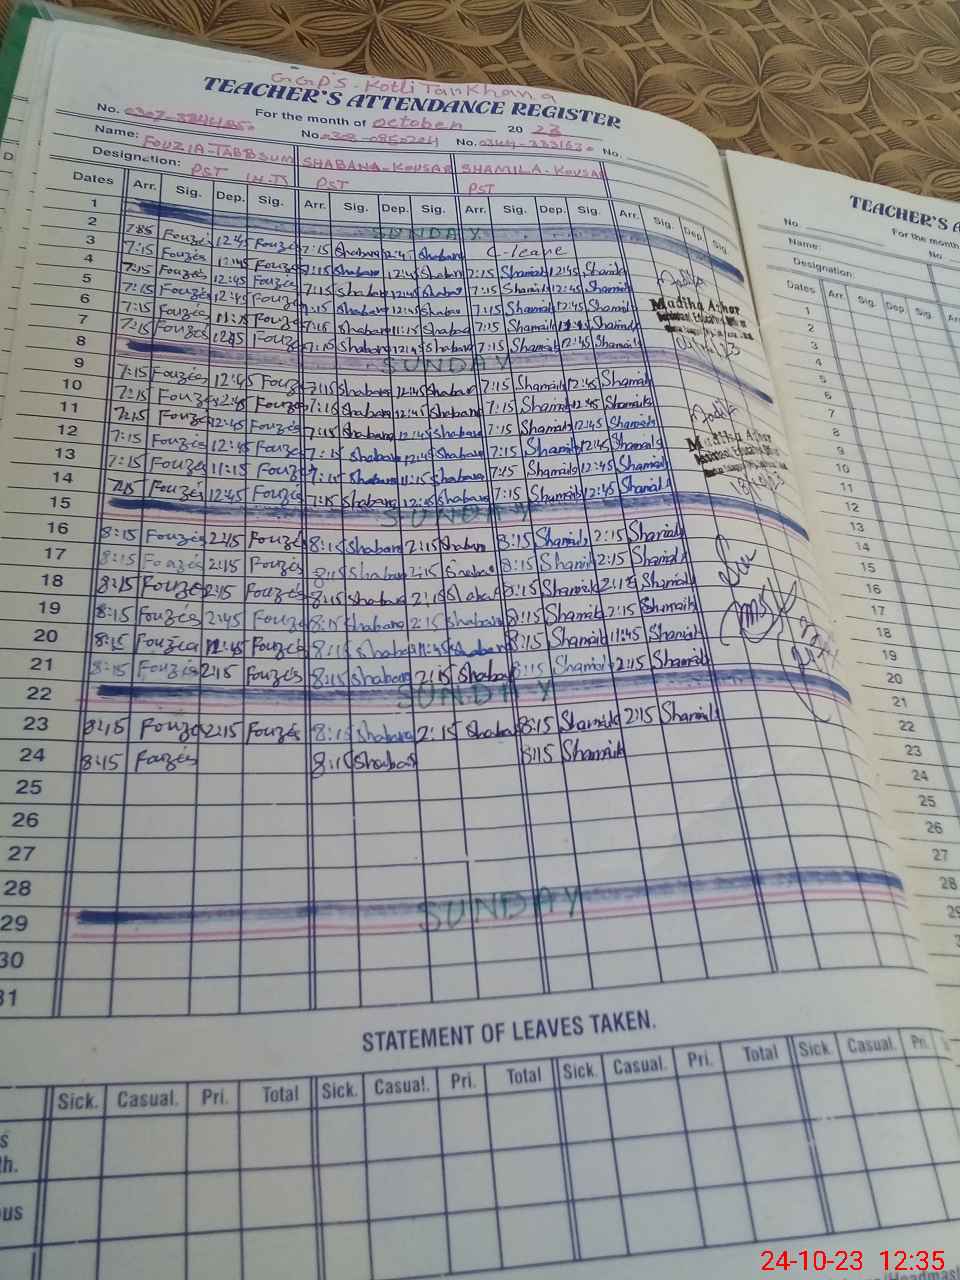 GGPS - Kotli Tarkhana
TEACHER'S ATTENDANCE REGISTER
For the month of october 2023
No. No. No. No.
Name: FOUZIA-TABBSUM SHABANA-KOUSAR SHAMILA-KOUSAR
Designation: PST PST PST
Dates Arr. Sig. Dep. Sig. Arr. Sig. Dep. Sig. Arr. Sig. Dep. Sig. Arr. Sig. Dep. Sig.
1 SUNDAY
2 Fouzia 12:45 Fouzia 7:15 Shabana Shabana C-leave
3 7:15 Fouzia 12:45 Fouzia 7:15 Shabana 12:45 Shabana 7:15 Shamila 12:45 Shamila
4 7:15 Fouzia 12:45 Fouzia 7:15 Shabana 12:45 Shabana 7:15 Shamila 12:45 Shamila
5 7:15 Fouzia 12:45 Fouzia 7:15 Shabana 12:45 Shabana 7:15 Shamila 12:45 Shamila
6 7:15 Fouzia 11:15 Fouzia 7:15 Shabana 11:15 Shabana 7:15 Shamila Shamila
7 7:15 Fouzia 12:45 Fouzia 7:15 Shabana 12:45 Shabana 7:15 Shamila 12:45 Shamila
Madiha Azhar
8 SUNDAY
9 7:15 Fouzia 12:45 Fouzia 7:15 Shabana 12:45 Shabana 7:15 Shamila 12:45 Shamila
10 7:15 Fouzia 12:45 Fouzia 7:15 Shabana 12:45 Shabana 7:15 Shamila 12:45 Shamila
11 7:15 Fouzia 12:45 Fouzia 7:15 Shabana 12:45 Shabana 7:15 Shamila 12:45 Shamila
12 7:15 Fouzia 12:45 Fouzia 7:15 Shabana 12:45 Shabana 7:15 Shamila 12:45 Shamila
13 7:15 Fouzia 11:15 Fouzia 7:15 Shabana 11:15 Shabana 7:15 Shamila 12:45 Shamila
14 7:15 Fouzia 12:45 Fouzia 7:15 Shabana 12:45 Shabana 7:15 Shamila 12:45 Shamila
Madiha Azhar
15 SUNDAY
16 8:15 Fouzia 2:15 Fouzia 8:15 Shabana 2:15 Shabana 8:15 Shamila 2:15 Shamila
17 8:15 Fouzia 2:15 Fouzia 8:15 Shabana 2:15 Shabana 8:15 Shamila 2:15 Shamila
18 8:15 Fouzia 2:15 Fouzia 8:15 Shabana 2:15 Shabana 8:15 Shamila 2:15 Shamila
19 8:15 Fouzia 2:45 Fouzia 8:15 Shabana 2:15 Shabana 8:15 Shamila 2:15 Shamila
20 8:15 Fouzia 11:45 Fouzia 8:15 Shabana 11:45 Shabana 8:15 Shamila 11:45 Shamila
21 8:15 Fouzia 2:15 Fouzia 8:15 Shabana 2:15 Shabana 8:15 Shamila 2:15 Shamila
22 SUNDAY
23 8:15 Fouzia 2:15 Fouzia 8:15 Shabana 2:15 Shabana 8:15 Shamila 2:15 Shamila
24 8:15 Fouzia 8:15 Shabana 8:15 Shamila
25
26
27
28
29 SUNDAY
30
31
STATEMENT OF LEAVES TAKEN.
Sick. Casual. Pri. Total Sick. Casual. Pri. Total Sick. Casual. Pri. Total Sick. Casual. Pri.
TEACHER'S A
No.
For the month
Name:
No
Designation:
Dates Arr. Sig. Dep Sig.
1
2
3
4
5
6
7
8
9
10
11
12
13
14
15
16
17
18
19
20
21
22
23
24
25
26
27
28
24-10-23 12:35